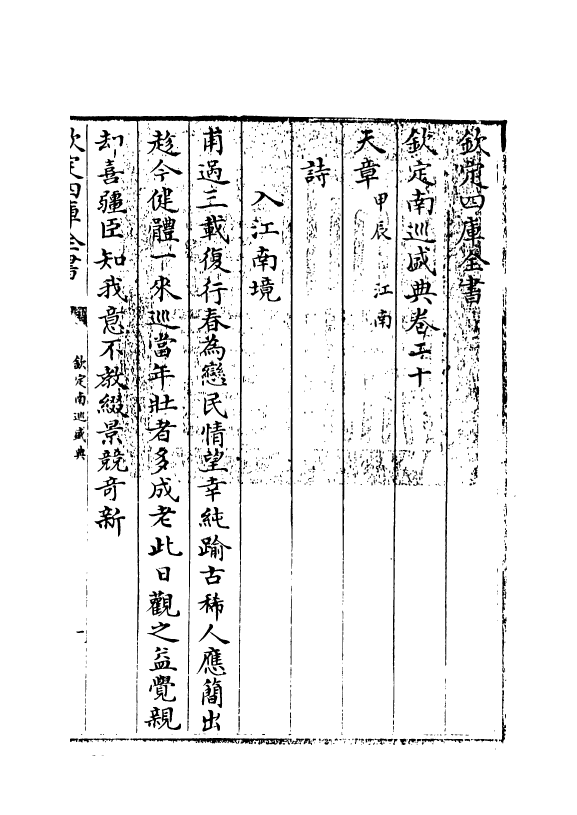 欽定四庫全書
欽定南巡盛典卷 十
天章 甲辰 江南
詩
入江南境
甫過三載復行春為戀民情望幸純踰古稀人應簡出
趁今健體一來巡當年壯者多成老此日觀之益覺親
却喜疆臣知我意不教綴景競奇新
欽定四庫全書
欽定南巡盛典
一